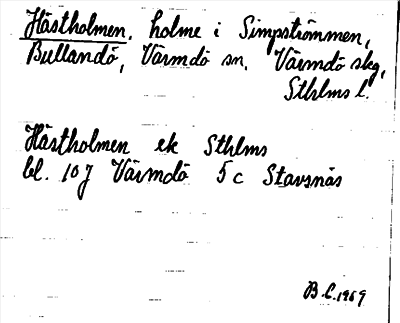 Hästholmen, holme i Simpströmmen,
Bullandö, Värmdö sn, Värmdö skg,
Sthlms l.
Hästholmen ek Sthlms
bl. 10 J Värmdö 5 c Stavsnäs
B.C. 1969